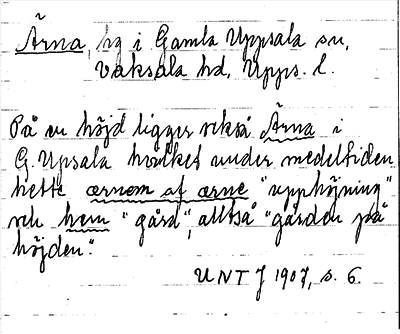 Ärna, hg i Gamla Uppsala sn,
Vaksala hd, Upps. l.
På en höjd ligger också Ärna i
G. Upsala hvilket under medeltiden
hette ærnem af ærne "upphöjning"
och hem "gård", alltså "gården på
höjden."
UNT J 1907, s. 6.